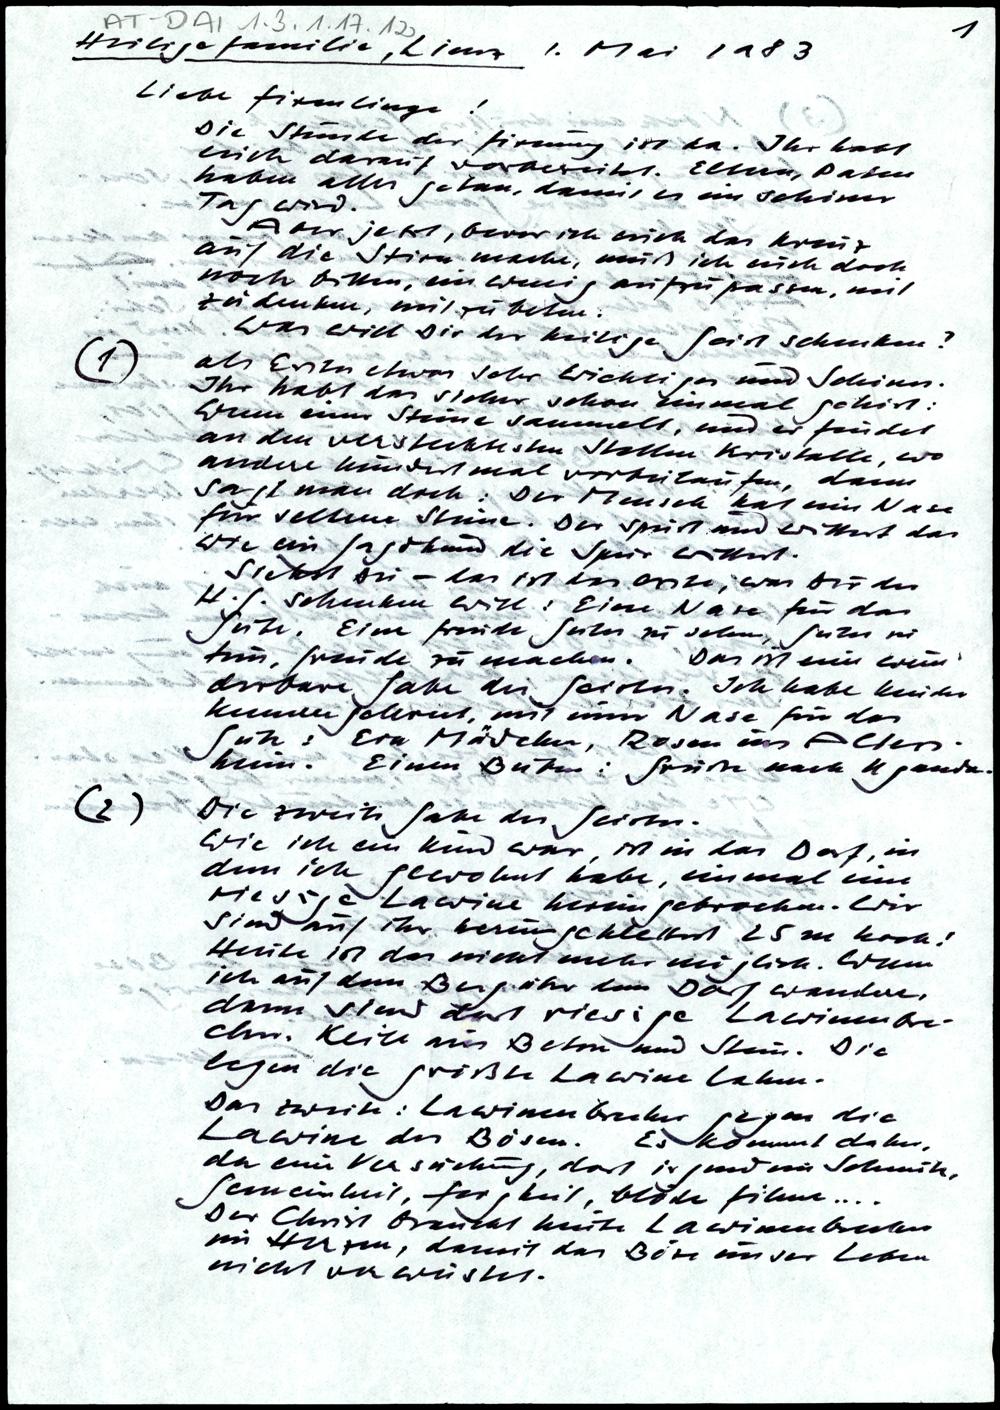 AT-DAI 1.3.1.17.120
1
Heilige Familie, Lienz 1. Mai 1983
Liebe Firmlinge!
Die Stunde der Firmung ist da. Ihr habt
euch darauf vorbereitet. Eltern, Paten
haben alles getan, damit es ein schöner
Tag wird.
Aber jetzt, bevor ich euch das Kreuz
auf die Stirn mache, muß ich euch doch
noch bitten, ein wenig aufzupassen, mit
zudenken, mitzubeten.
Was will Dir der heilige Geist schenken?
(1) als Erstes etwas sehr Wichtiges und Schönes.
Ihr habt das sicher schon einmal gehört:
Wenn einer Steine sammelt, und er findet
an den verstecktesten Stellen Kristalle, wo
andere hundertmal vorbeilaufen, dann
sagt man doch: Der Mensch hat eine Nase
für seltene Steine. Der spürt und wittert das
wie ein Jagdhund die Spur wittert.
Siehst Du - das ist das erste, was Dir der
H.G. schenken will: Eine Nase für das
Gute. Eine Freude Gutes zu sehen, Gutes zu
tun, Freude zu machen. Das ist eine wun
derbare Gabe des Geistes. Ich habe Kinder
kennengelernt, mit einer Nase für das
Gute: Ein Mädchen, Rosen ins Alters-
heim. Einen Buben: Grüße nach Uganda.
(2) Die zweite Gabe des Geistes.
Wie ich ein Kind war, ist in das Dorf, in
dem ich gewohnt habe, einmal eine
riesige Lawine hereingebrochen. Wir
sind auf ihr herumgeklettert 25 m hoch!
Heute ist das nicht mehr möglich. Wenn
ich auf dem Berg über dem Dorf wandere,
dann sind dort riesige Lawinenbre-
cher. Keile aus Beton und Stein. Die
legen die größte Lawine lahm.
Das zweite: Lawinenbrecher gegen die
Lawine des Bösen. Es kommt daher,
da eine Versuchung, dort irgendein Schmutz,
Gemeinheit, Feigheit, blöde Filme....
Der Christ braucht heute Lawinenbrecher
im Herzen, damit das Böse unser Leben
nicht verwüstet.